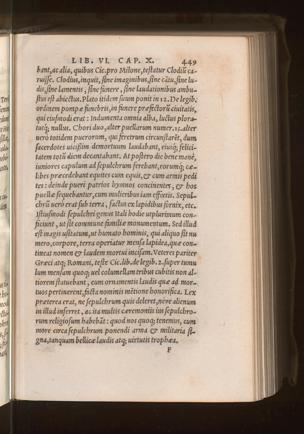 LIB. VI. CAP. X. 449
bant, ac alia, quibus Cic. pro Milone, testatur Clodiũ ca-
ruisse. Clodius, inquit, sine imaginibus, sine cãtu, sine lu-
dis, sine lamentis, sine funere, sine laudationibus ambu-
stus est abiectus. Plato itidem ferè ponit in 12. De legib.
ordinem pompæ funebris, in funere præfectorũ ciuitatis,
qui eiusmodi erat: Indumenta omnia alba, luctus plora-
tusq; nullus. Chori duo, alter puellarum numer. 15. alter
uero totidem puerorum, qui feretrum circunstarẽt, dum
sacerdotes uicissim demortuum laudabant, eiusq; felici-
tatem totũ diem decantabant. At postero die bene mane,
iuniores capulum ad sepulchrum ferebant, eorumq; cæ-
libes præcedebant equites cum equis, & cum armis pedi
tes: deinde pueri patrios hymnos concinentes, & hos
puellæ sequebantur, cum mulieribus iam effœtis. Sepul-
chrũ uerò erat sub terra, factus ex lapidibus fornix, etc.
Istiusmodi sepulchri genus Itali hodie utplurimum con-
ficiunt, ut sit commune familiæ monumentum. Sed illud
est magis usitatum, ut humato hominis, qui aliquo sit nu
mero, corpore, terra operiatur mensa lapidea, quæ con-
tineat nomen & laudem mortui incisam. Veteres pariter
Græci atq; Romani, teste Cic. lib. de legib. 2. super tumu
lum mensam quoq; uel columellam tribus cubitis non al-
tiorem statuebant, cum ornamentis laudis quæ ad mor-
tuos pertinerent, facta nominis mẽtione honorifica. Lex
præterea erat, ne sepulchrum quis deleret, néue alienum
in illud inferret, ac ita multis ceremoniis ius sepulchro-
rum religiosum habebãt: quod nos quoq; tenemus, cum
more circa sepulchrum ponendi arma & militaria si-
gna, tanquam bellicæ laudis atq; uirtutis trophæa.
F